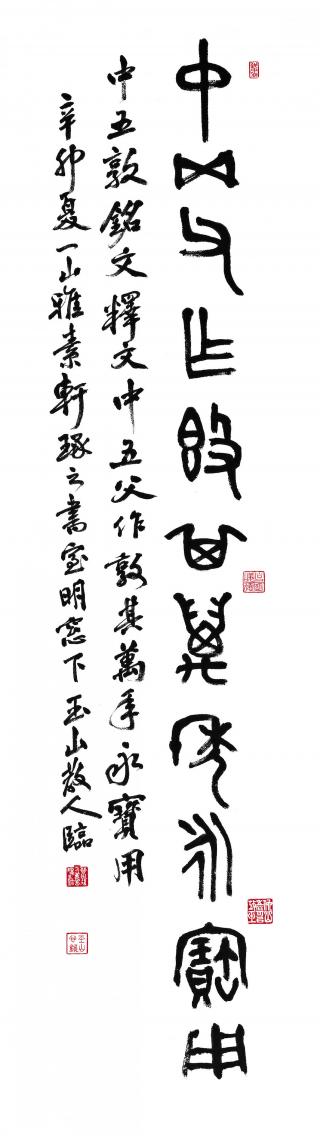 中五父作敦其萬年永寶用
中五敦銘文釋文中五父作敦其萬年永寶用
辛卯夏一山雅素軒琢之書室明窓下玉山散人臨